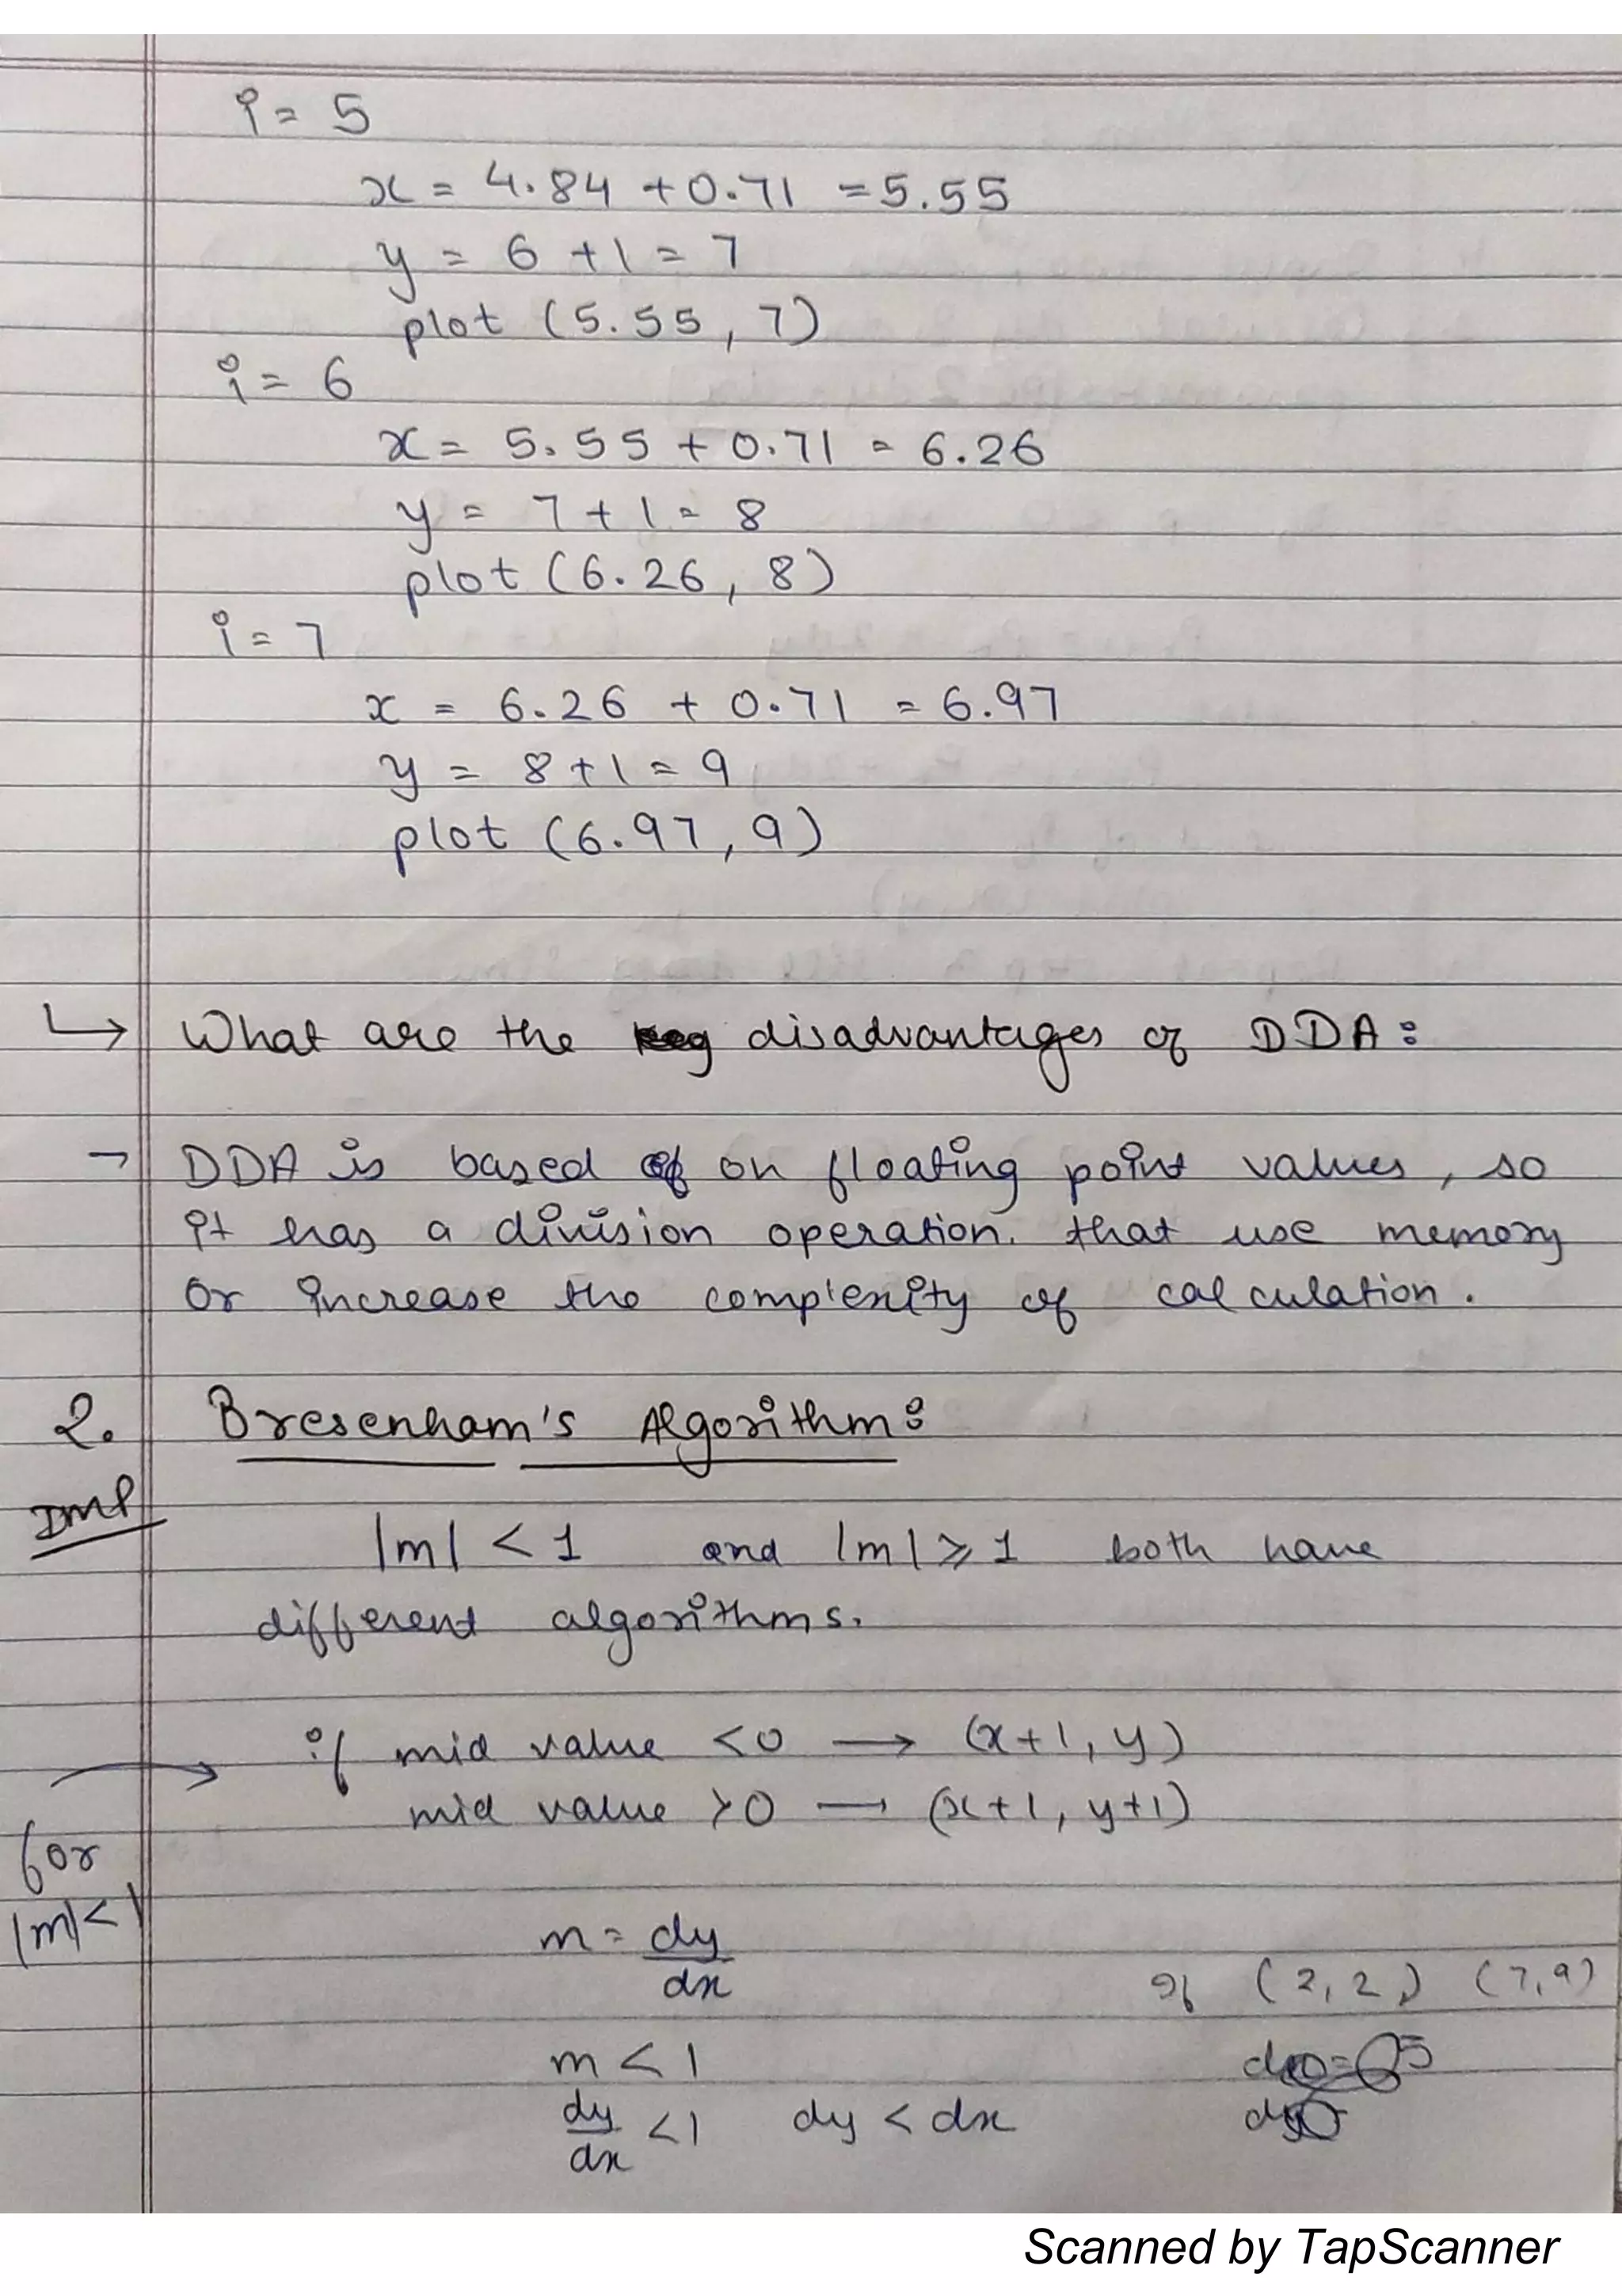 i = 5
x = 4.84 + 0.71 = 5.55
y = 6 + 1 = 7
plot (5.55, 7)
i = 6
x = 5.55 + 0.71 = 6.26
y = 7 + 1 = 8
plot (6.26, 8)
i = 7
x = 6.26 + 0.71 = 6.97
y = 8 + 1 = 9
plot (6.97, 9)
↳ What are the disadvantages of DDA:
¬ DDA is based on floating point values, so
it has a division operation. that use memory
or increase the complexity of calculation.
2. Bresenham's Algorithm:
IMP
|m| < 1 and |m| ≥ 1 both have
different algorithms.
→ if mid value < 0 → (x+1, y)
mid value > 0 → (x+1, y+1)
for
|m| < 1
m = dy/dx
if (2, 2) (7, 9)
m < 1
dy/dx < 1 dy < dx
Scanned by TapScanner